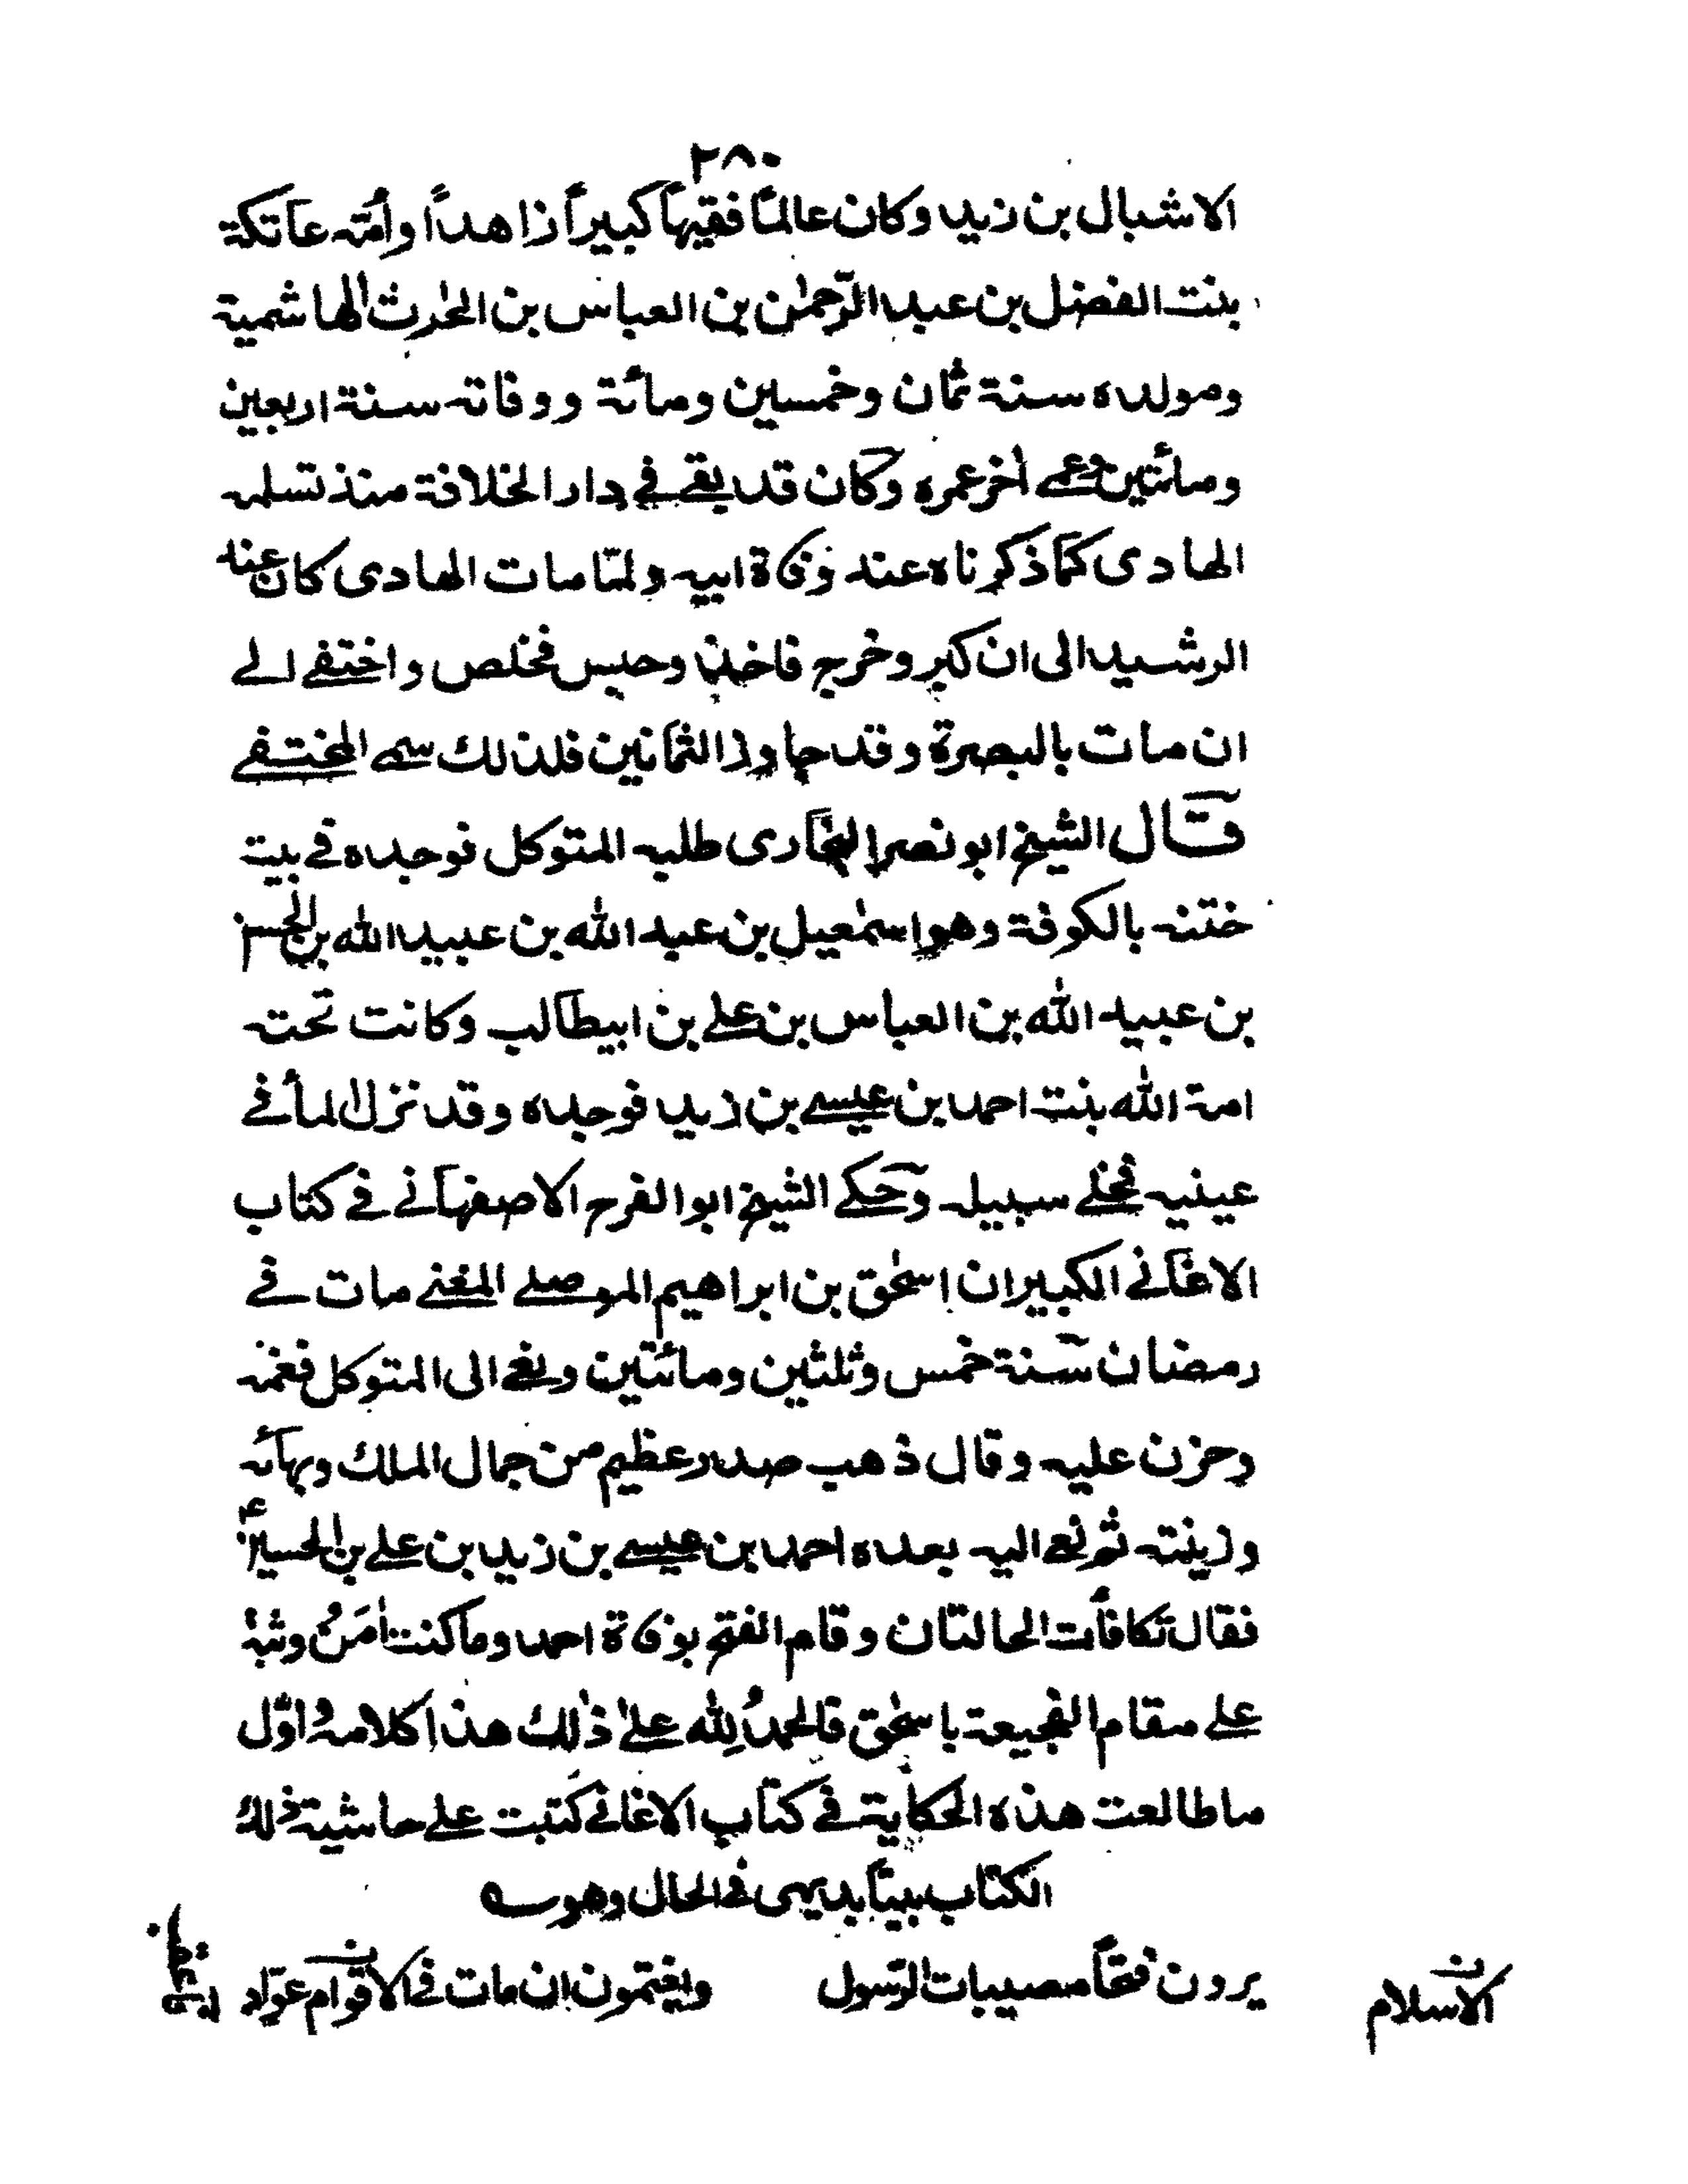 ٢٨٠
الاشبال بن زيد وكان عالمًا فقيهًا كبيرًا زاهدًا وأمّه عاتكة
بنت الفضل بن عبد الرّحمٰن بن العباس بن الحٰرث الهاشمية
ومولده سنة ثمان وخمسين ومائة ووفاته سنة اربعين
ومائتين وعمے اٰخر عمره وكان قد بقے فے دار الخلافة منذ تسلمه
الهادى كما ذكرناه عند وفاة ابيه ولمّا مات الهادى كان عند
الرشيد الى ان كبر وخرج فاخذ وحبس فخلص واختفے الے
ان مات بالبصرة وقد جاوز الثمانين فلذلك سمے المختفے
قال الشيخ ابو نصر البخارى طلبه المتوكل فوجده فے بيت
ختنه بالكوفة وهو اسمٰعيل بن عبد الله بن عبيد الله بن الحسن
بن عبيد الله بن العباس بن علے بن ابيطالب وكانت تحته
امة الله بنت احمد بن عيسے بن زيد فوجده وقد نزل الماء فے
عينيه فخلے سبيله وحكے الشيخ ابو الفرج الاصفهانے فے كتاب
الاغانے الكبير ان اسحٰق بن ابراهيم الموصلے المغنے مات فے
رمضان سنة خمس وثلثين ومائتين ونعے الى المتوكل فغمّه
وحزن عليه وقال ذهب صدر عظيم من جمال الملك وبهائه
وزينته ثم نعے اليه بعده احمد بن عيسے بن زيد بن علے بن الحسين ع
فقال تكافأت الحالتان وقام الفتح بوفاة احمد وما كنت اٰمَنُ وثبة
علے مقام الفجيعة باسحٰق فالحمدُ لِلّٰه علےٰ ذٰلك هذا كلامه واوّل
ما طالعت هذه الحكاية فے كتاب الاغانے كتبت علے حاشية ذلك
الكتاب بيتًا بديهى فے الحال وهو
يرون فتحًا مصيبات الرّسول ويغتمون ان مات فے الاقوام عوّاد
الاسلام